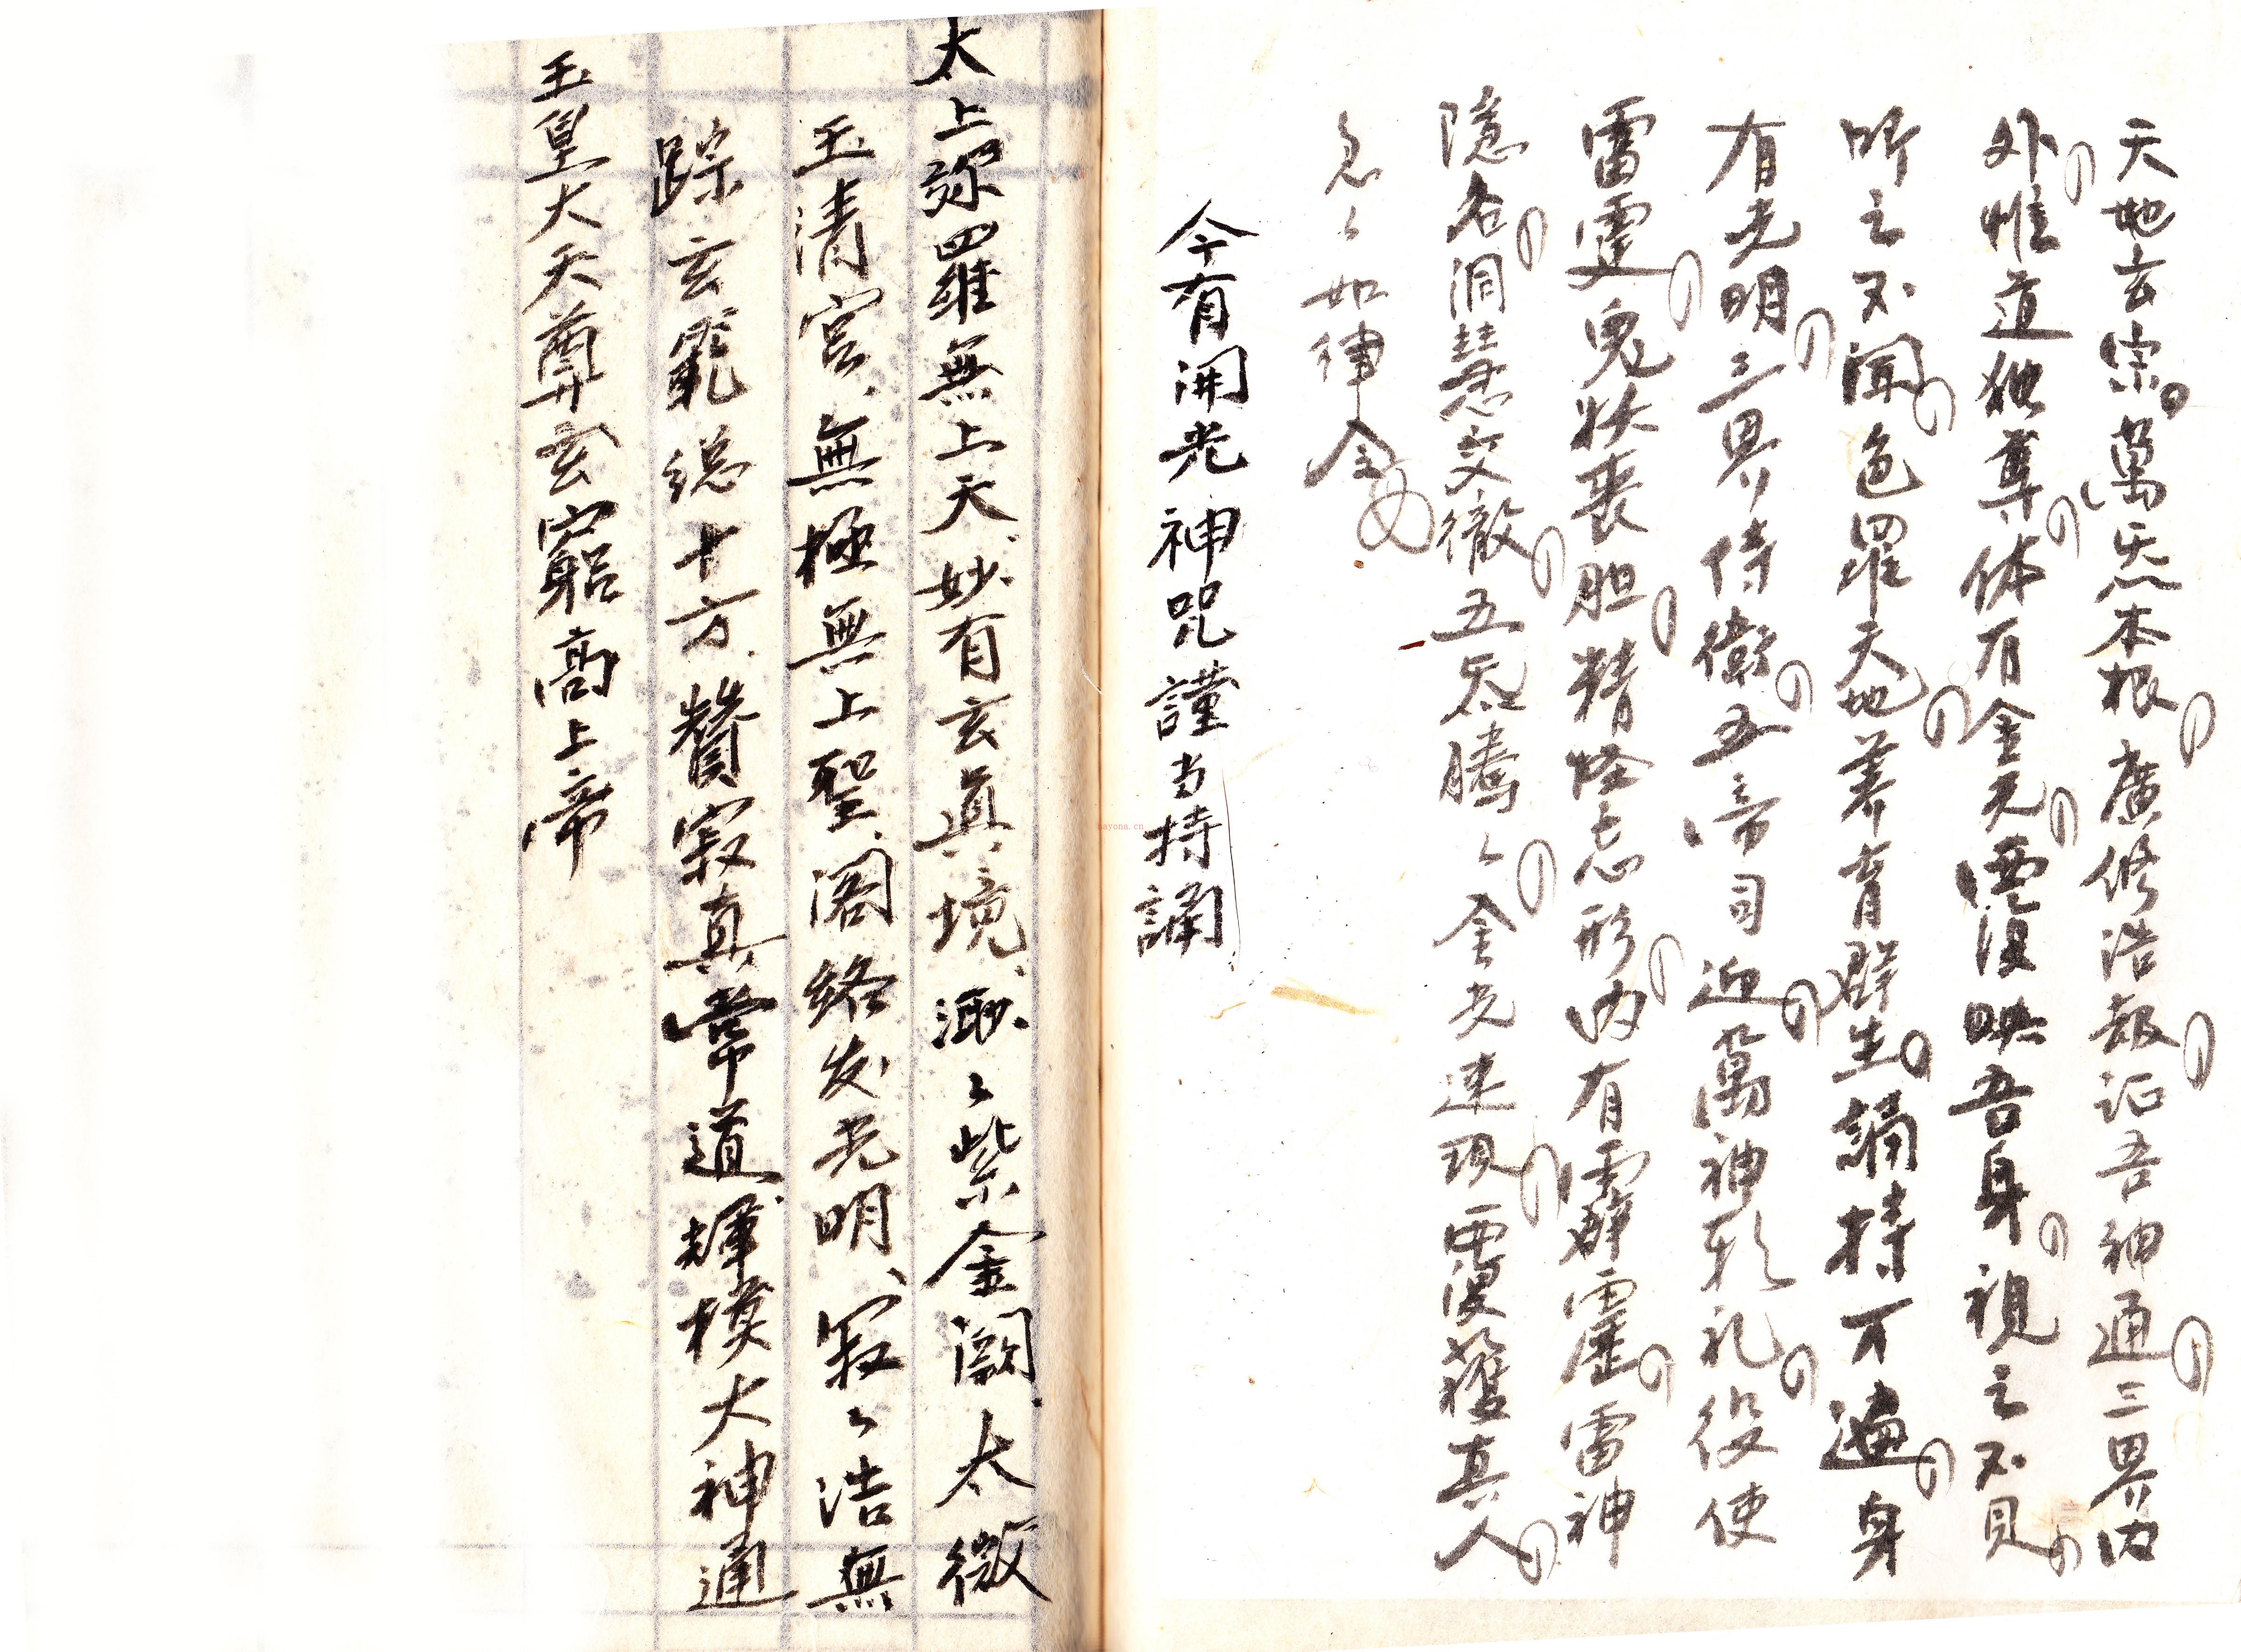 天地玄宗萬炁本根廣修浩劫証吾神通三界内
外惟道独尊体有金光覆映吾身視之不見
听之不聞包羅天地养育群生誦持万遍身
有光明三界侍衛五帝司迎萬神朝礼役使
雷霆鬼妖丧胆精怪忘形内有霹靂雷神
隱名洞慧交徹五炁騰々金光速現覆護真人
急々如律令
今有開光神咒謹当持誦
太上弥羅無上天妙有玄真境渺々紫金闕太微
玉清宮無極無上聖阁络发光明寂々浩無
踪玄範総十方赞寂真常道輝模大神通
玉皇大天尊玄窮高上帝
nayona.cn